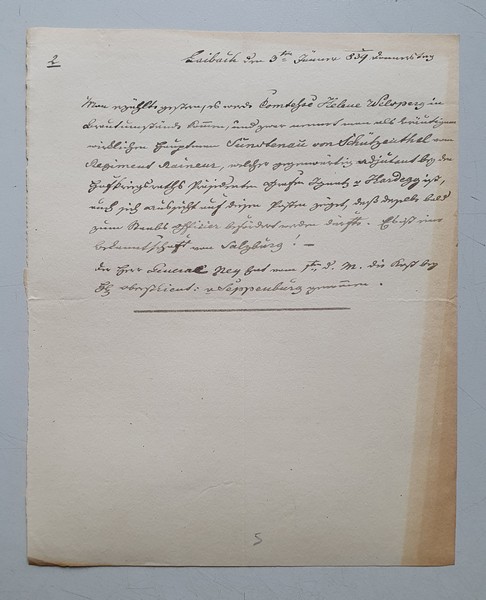 2
Laibach den 3ten Jänner 839 Donnerstag
Man erzählte gestern, es werde Comtesse Helene Welsperg in
Brautumstände kommen, und zwar nennt man als Bräutigam
wirklichen Hauptmann von Schützenthal vom
Regiment Rainer, welcher gegenwärtig Adjutant bey dem
Hofkriegsraths Präsidenten Grafen Ignatz v Hardegg ist,
auch sich Aussicht auf diesen Posten zeiget, daß derselbe bald
zum Staabs Officier befördert werden dürfte. Es ist eine
Bekanntschaft von Salzburg! —
Der Herr General Rey hat vom 1ten d. M. die Kost bey
v Seppenburg genommen.
5